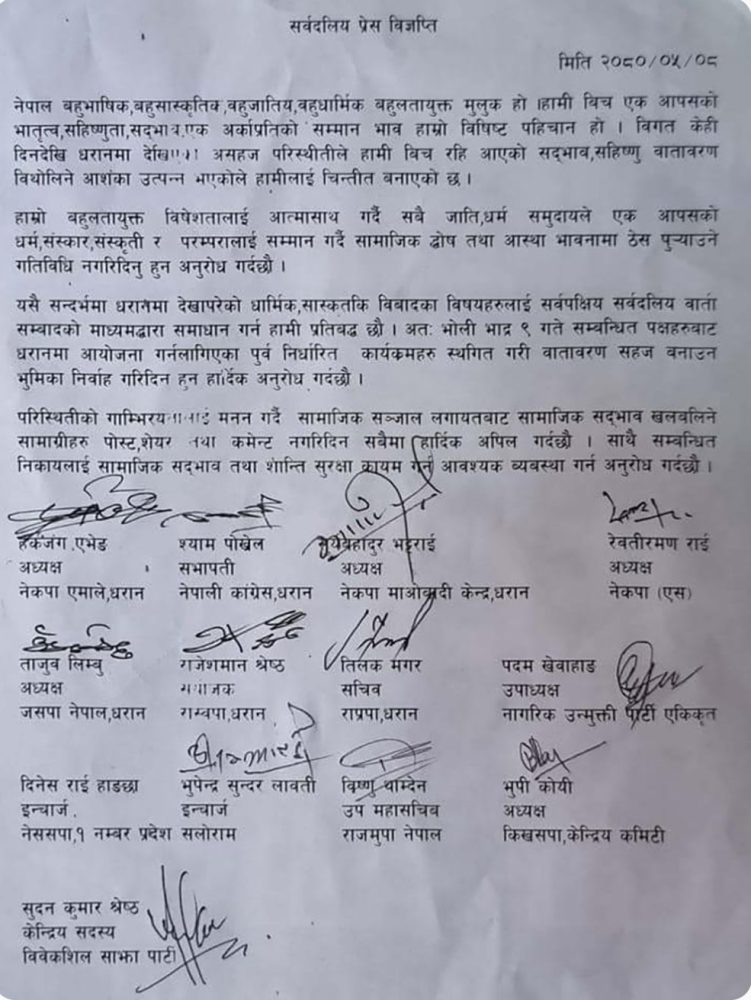 सर्वदलिय प्रेस विज्ञप्ति
मिति २०८०/०५/०८
नेपाल बहुभाषिक,बहुसास्कृतिक,वहुजातिय,वहुधार्मिक बहुलतायुक्त मुलुक हो ।हामी विच एक आपसको
भातृत्व,सहिष्णुता,सद्भाव,एक अर्काप्रतिको सम्मान भाव हाम्रो विषिष्ट पहिचान हो । विगत केही
दिनदेखि धरानमा असहज परिस्थीतीले हामी विच रहि आएको सद्भाव,सहिष्णु वातावरण
विथोलिने आशंका उत्पन्न भएकोले हामीलाई चिन्तीत बनाएको छ ।
हाम्रो बहुलतायुक्त विषेशतालाई आत्मासाथ गर्दै सबै जाति,धर्म समुदायले एक आपसको
धर्म,संस्कार,संस्कृती र परम्परालाई सम्मान गर्दै सामाजिक द्वोष तथा आस्था भावनामा ठेस पुऱ्याउने
गतिविधि नगरिदिनु हुन अनुरोध गर्दछौ ।
यसै सन्दर्भमा धरानमा देखापरेको धार्मिक,सास्कृतकि विबादका विषयहरुलाई सर्वपक्षिय सर्वदलिय वार्ता
सम्बादको माध्यमद्वारा समाधान गर्न हामी प्रतिबद्ध छौ । अतः भोली भाद्र ९ गते सम्बन्धित पक्षहरुबाट
धरानमा आयोजना गर्नलागिएका पुर्व निर्धारित कार्यकमहरु स्थगित गरी वातावरण सहज बनाउन
भुमिका निर्वाह गरिदिन हुन हार्दिक अनुरोध गर्दछौ ।
परिस्थितीको मनन गर्दै सामाजिक सञ्जाल लगायतबाट सामाजिक सद्भाव खलवलिने
सामाग्रीहरु पोस्ट,शेयर तथा कमेन्ट नगरिदिन सबैमा हार्दिक अपिल गर्दछौ । साथै सम्बन्धित
निकायलाई सामाजिक सद्भाव तथा शान्ति सुरक्षा कायम गर्न आवश्यक ब्यबस्था गर्न अनुरोध गर्दछौ ।
हर्कजंग,एभेङ श्याम पोखेल भट्टराई रेवतीरमण राई
अध्यक्ष सभापती अध्यक्ष अध्यक्ष
नेकपा एमाले,धरान नेपाली कांग्रेस,धरान नेकपा माओबादी केन्द्र,धरान नेकपा (एस)
ताजुव लिम्बु श्रेष्ठ तिलक मगर पदम खेवाहाङ
अध्यक्ष सचिव उपाध्यक्ष
जसपा नेपाल,धरान धरान राप्रपा,धरान नागरिक उन्मुक्ती पार्टी एकिकृत
दिनेस राई हाङछा भुपेन्द्र सुन्दर लावती विष्णु थाम्देन भुपी कोयी
इन्चार्ज इन्चार्ज उप महासचिव अध्यक्ष
नेससपा,१ नम्बर प्रदेश सलोराम राजमुपा नेपाल किखसपा,केन्द्रिय कमिटी
सुदन कुमार श्रेष्ठ
केन्द्रिय सदस्य
विवेकशिल साझा पार्टी